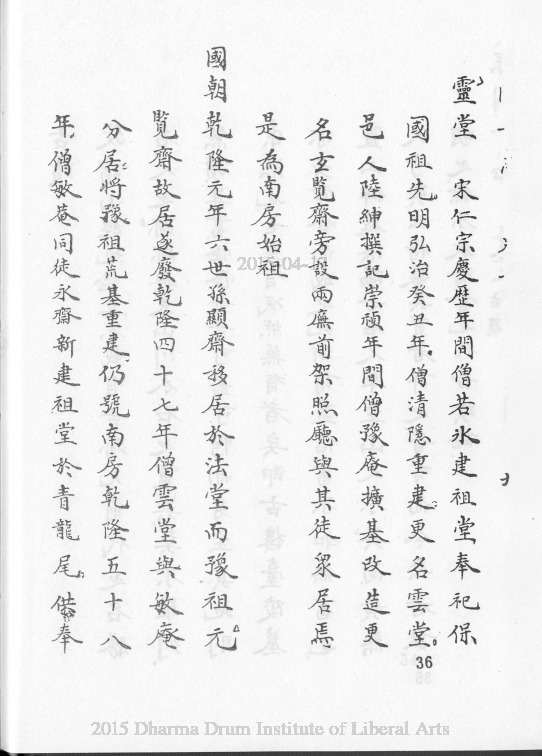 靈堂　宋仁宗慶歷年間僧若氷建祖堂奉祀保
國祖先明弘治癸丑年僧清隱重建更名雲堂
邑人陸紳撰記崇禎年間僧豫庵擴基改造更
名玄覽齋旁設兩廡前架照廳與其徒眾居焉
是為南房始祖
國朝乾隆元年六世孫顯齋移居於法堂而豫祖元
覽齋故居遂廢乾隆四十七年僧雲堂與敏庵
分居將豫祖荒基重建仍號南房乾隆五十八
年僧敏菴同徒永齋新建祖堂於青龍尾俻奉
36
2015 Dharma Drum Institute of Liberal Arts